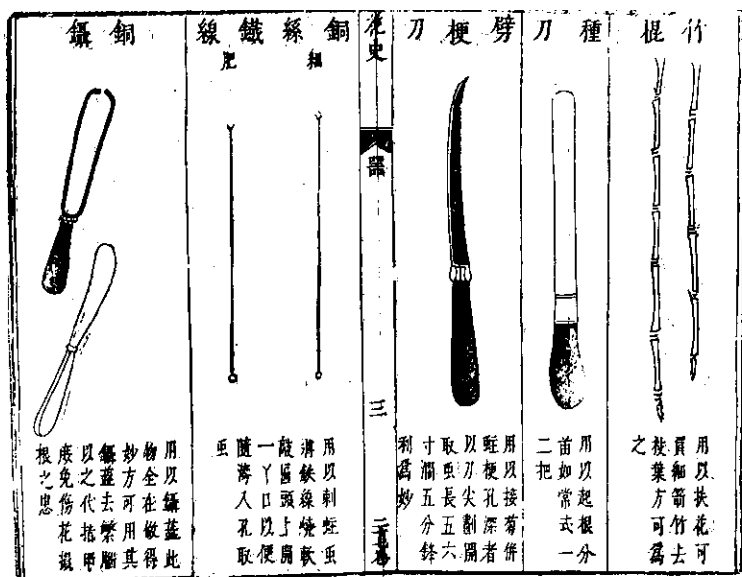 竹棍
用以扶花可
買細箭竹去
枝葉方可為
之
種刀
用以起根分
苗如常式一
二把
劈梗刀
用以接菊併
蛀梗孔深者
以刀尖劃開
取虫長五六
寸濶五分鋒
利為妙
花史
器
三
銅絲鐵線
細
肥
用以刺蛀虫
鉄線燒軟
敲匾頭上開
一丫口以便
隨灣入孔取
虫
銅鑷
用以鑷蕋此
物全在做得
妙方可用其
鑷蕋去繁腦
以之代指甲
庶免傷花損
根之患